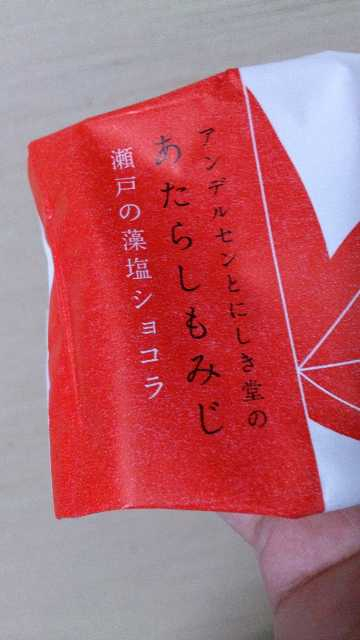 アンデルセンとにしき堂の
あたらしもみじ
瀬戸の藻塩ショコラ